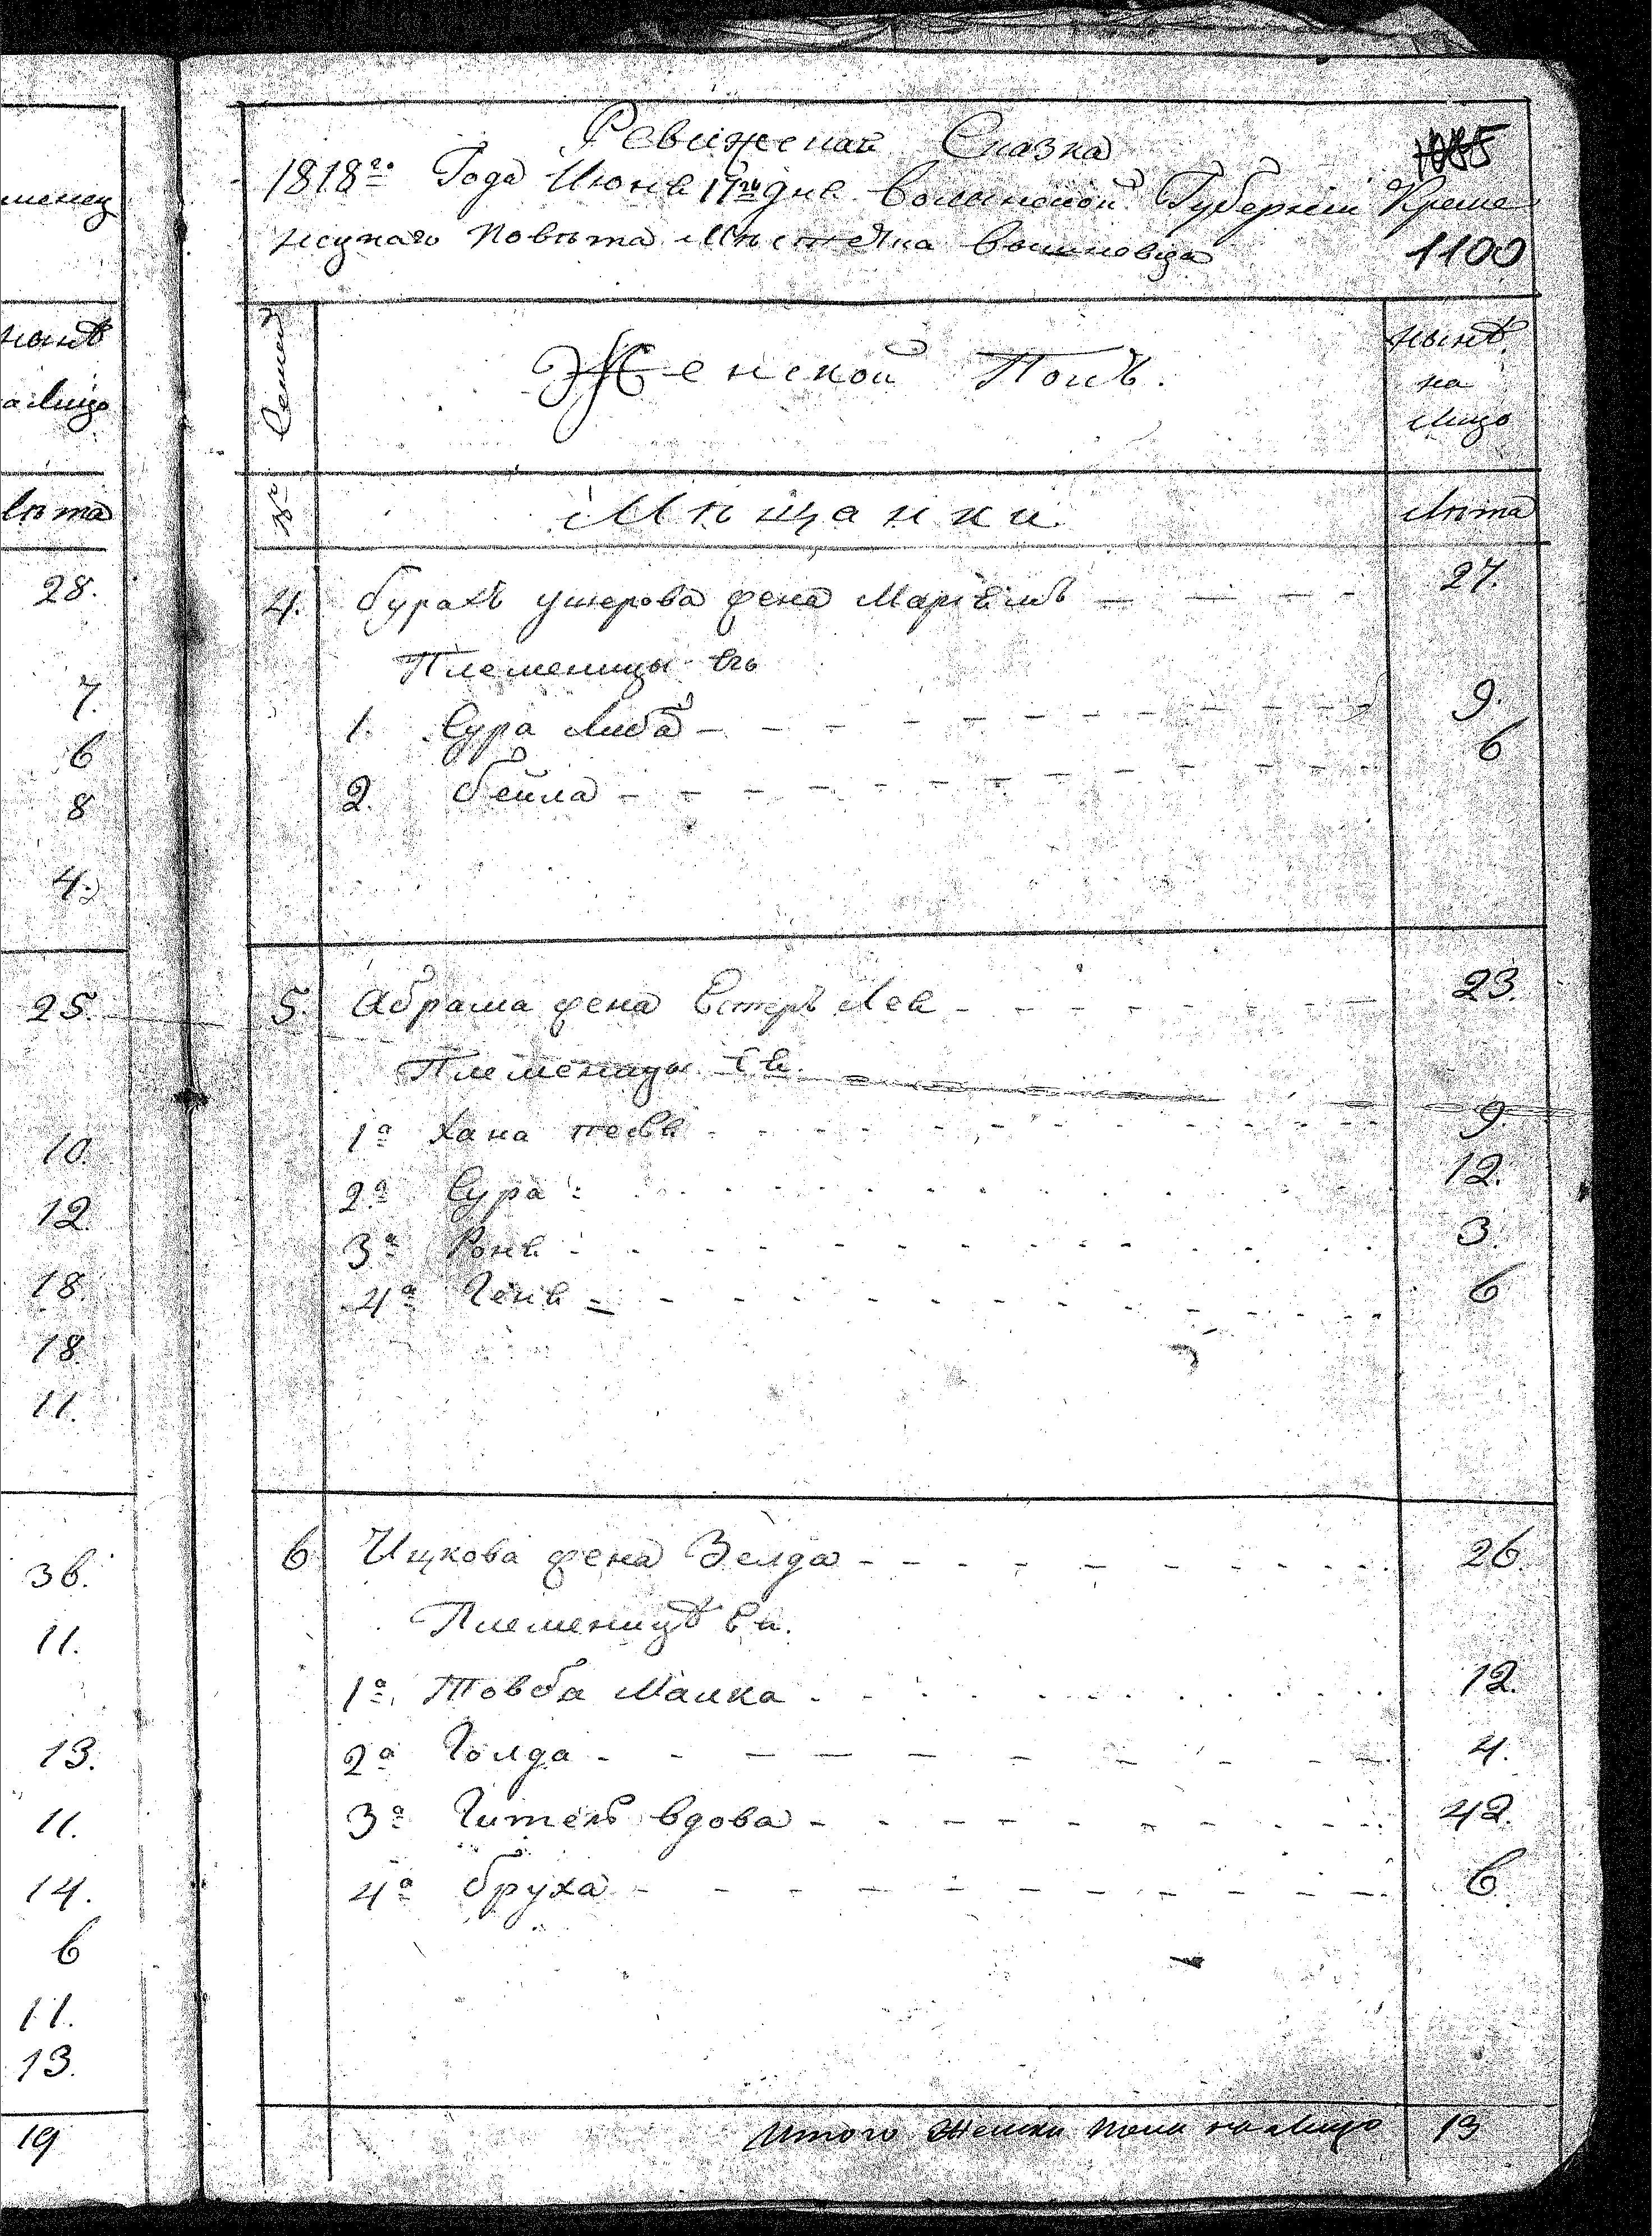 менец
нынѣ
а лицо
лѣта
28.
7.
6
8
4.
25.
10.
12
18.
18.
11.
36.
11.
13.
11.
14.
6
11.
13.
19
Ревизская Сказка
1818го Года Июня дня Волынской Губернiи Креме
нецкаго Повѣта Мѣстечка Вишневца
1100
№ Семей
Женской Полъ.
нынѣ
на
лицо
Мѣщанки
лѣта
4. Бурахъ ушерова жена Марiемъ 27.
Племеницы его
1. Сура Либа 9.
2. Бейла 6
5. Абрама жена Естеръ Лея 23.
Племеницы
1а Хана 9.
2а Сура 12.
3а Роня 3.
4а Геня 6
6 Ицкова жена Зелда 26
Племеницѣ
1а Товба Малка 12.
2а Голда 4.
3а вдова 42.
4а Бруха 6
Итого женска пола на лицо 13